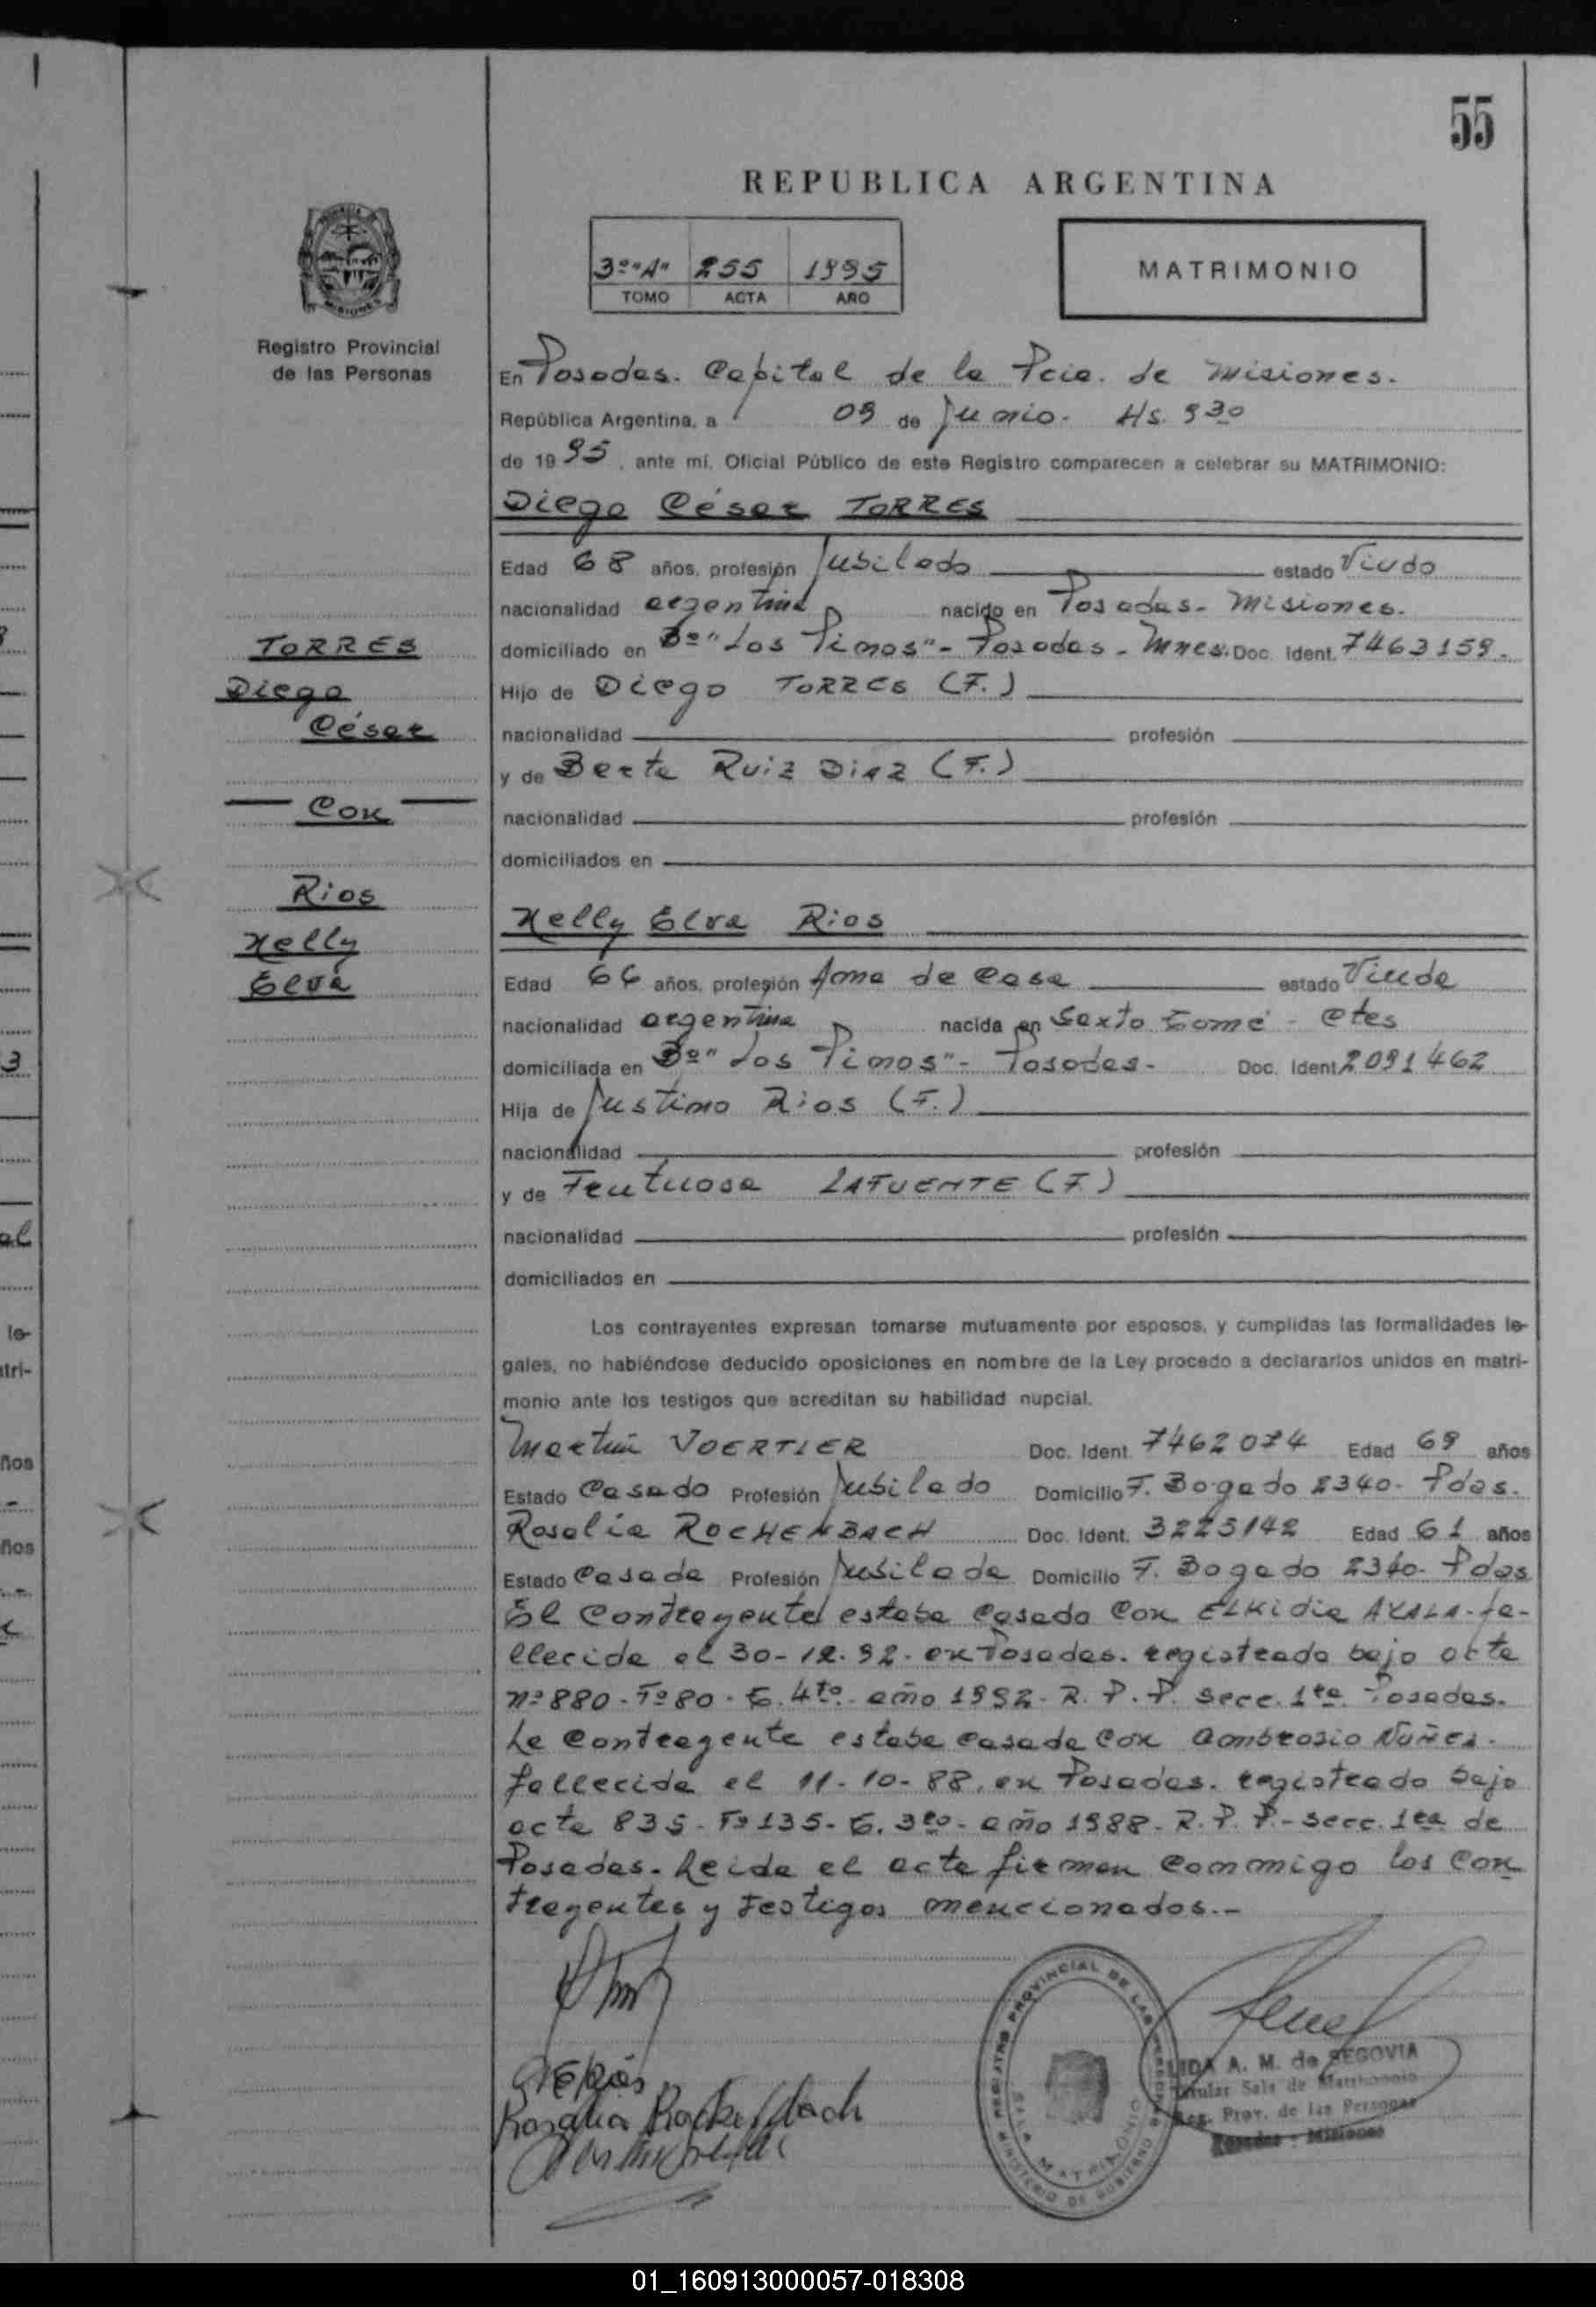 55
REPUBLICA ARGENTINA
3º"A" 255 1995
TOMO ACTA AÑO
MATRIMONIO
Registro Provincial
de las Personas
En Posadas. Capital de la Pcia. de Misiones.
República Argentina, a 09 de Junio. Hs. 9 30
de 19 95, ante mí, Oficial Público de este Registro comparecen a celebrar su MATRIMONIO:
Diego César TORRES
Edad 68 años, profesión Jubilado estado Viudo
nacionalidad argentina nacido en Posadas - Misiones.
domiciliado en Bº "Los Pinos" - Posadas - Mnes. Doc. Ident. 7463159.
Hijo de Diego TORRES (F.)
nacionalidad profesión
y de Berta Ruiz Diaz (F.)
nacionalidad profesión
domiciliados en
TORRES
Diego
César
Con
Rios
Nelly
Elva
Nelly Elva Rios
Edad 66 años, profesión Ama de Casa estado Viuda
nacionalidad argentina nacida en Santo Tomé - Ctes
domiciliada en Bº "Los Pinos" - Posadas - Doc. Ident. 2091462
Hija de Justino Rios (F.)
nacionalidad profesión
y de Frutuosa LAFUENTE (F.)
nacionalidad profesión
domiciliados en
Los contrayentes expresan tomarse mutuamente por esposos, y cumplidas las formalidades le-
gales, no habiéndose deducido oposiciones en nombre de la Ley procedo a declararlos unidos en matri-
monio ante los testigos que acreditan su habilidad nupcial.
Martin VOERTLER Doc. Ident. 7462074 Edad 69 años
Estado Casado Profesión Jubilado Domicilio F. Bogado 2340 - Pdas.
Rosalia ROCHENBACH Doc. Ident. 3225142 Edad 61 años
Estado Casada Profesión Jubilada Domicilio F. Bogado 2340 - Pdas
El Contrayente estaba casado con Elkidia AYALA - fa-
llecida el 30-12-92 - en Posadas. registrado bajo acta
nº 880 - Fº 80 - T. 4to - año 1992 - R. P. P. Secc. 1ra Posadas.
La Contrayente estaba casada con Ambrosio Nuñez.
fallecido el 11-10-88, en Posadas. registrado bajo
acta 835 - Fº 135 - T. 3ro - año 1988 - R. P. P. - Secc. 1ra de
Posadas. Leida el acta firman conmigo los con
trayentes y testigos mencionados.-
NERios
Rosalia Rochenbach
REGISTRO PROVINCIAL DE LAS PERSONAS
SALA MATRIMONIO
MINISTERIO DE GOBIERNO
LIDA A. M. de SEGOVIA
Titular Sala de Matrimonio
Reg. Prov. de las Personas
Posadas - Misiones
01_160913000057-018308